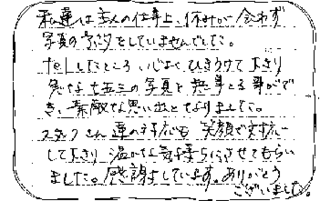 私達は主人の仕事上、休みが合わず
写真の予約をしていませんでした。
telしたところ、心よくひきうけて下さり
急な七五三の写真を無事とる事ができ、
素敵な思い出となりました。
スタッフさん達の対応も笑顔で対応
して下さり温かな気持ちにさせてもらい
ました。感謝しています。ありがとう
ございました。